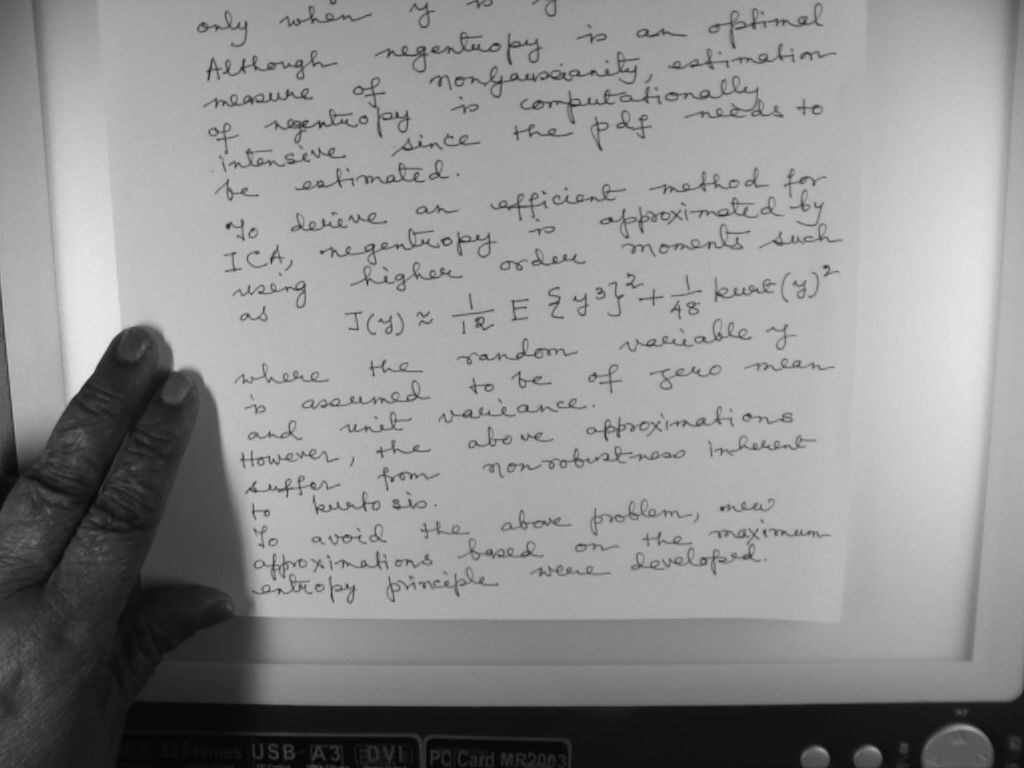 only when y is
Although negentropy is an optimal
measure of nongaussianity, estimation
of negentropy is computationally
intensive since the pdf needs to
be estimated.
To derieve an efficient method for
ICA, negentropy is approximated by
using higher order moments such
as J(y) ≈ 1/12 E {y³}² + 1/48 kurt(y)²
where the random variable y
is assumed to be of zero mean
and unit variance.
However, the above approximations
suffer from nonrobustness inherent
to kurtosis.
To avoid the above problem, new
approximations based on the maximum
entropy principle were developed.
32 Frames USB A3 DVI PC Card MR2003